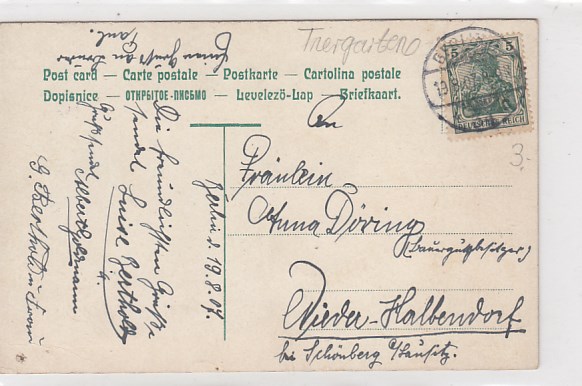 Tiergarten
Paul.
Post card — Carte postale — Postkarte — Cartolina postale
Dopisnice — ОТКРЫТОЕ-ПИСЬМО — Levelező-Lap — Briefkaart.
BERLIN
5 5
DEUTSCHES REICH
3.
An
Fräulein
Anna Döring
(Bauergutsbesitzer)
Nieder-Halbendorf
bei Schönberg O/Lausitz.
Berlin d. 19.8.07.
Die freundlichsten Grüße
sendet Luise Berthold
Gruß sendet
Albert Goldmann
G. Berthold u Frau